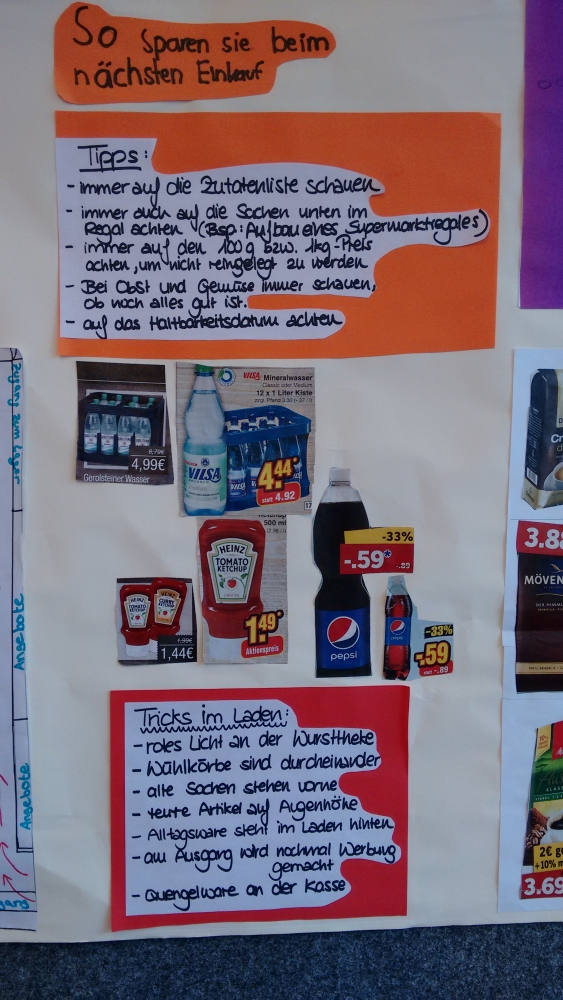 So sparen sie beim
nächsten Einkauf
Tipps:
- immer auf die Zutatenliste schauen
- immer auch auf die Sachen unten im
Regal achten (Bsp: Aufbau eines Supermarktregales)
- immer auf den 100g bzw. 1kg-Preis
achten, um nicht reingelegt zu werden
- Bei Obst und Gemüse immer schauen,
ob noch alles gut ist.
- auf das Haltbarkeitsdatum achten
6,79€
4,99€
Gerolsteiner Wasser
VILSA Mineralwasser
Classic oder Medium
12 x 1 Liter Kiste
zzgl. Pfand 3.30
VILSA
4.44*
statt 4.92
17
500 ml
HEINZ
TOMATO
KETCHUP
1.49*
Aktionspreis
HEINZ
TOMATO
KETCHUP
HEINZ
CURRY
KETCHUP
1,99€
1,44€
-33%
-.59*
-.89
pepsi
-33%
-.59
statt -.89
Tricks im Laden:
- rotes Licht an der Wursttheke
- Wühlkörbe sind durcheinander
- alte Sachen stehen vorne
- teure Artikel auf Augenhöhe
- Alltagsware steht im Laden hinten
- am Ausgang wird nochmal Werbung
gemacht
- Quengelware an der Kasse
Zugang zum Lager
Angebote
Angebote
3.8
MÖVEN
2€
+10%
3.69